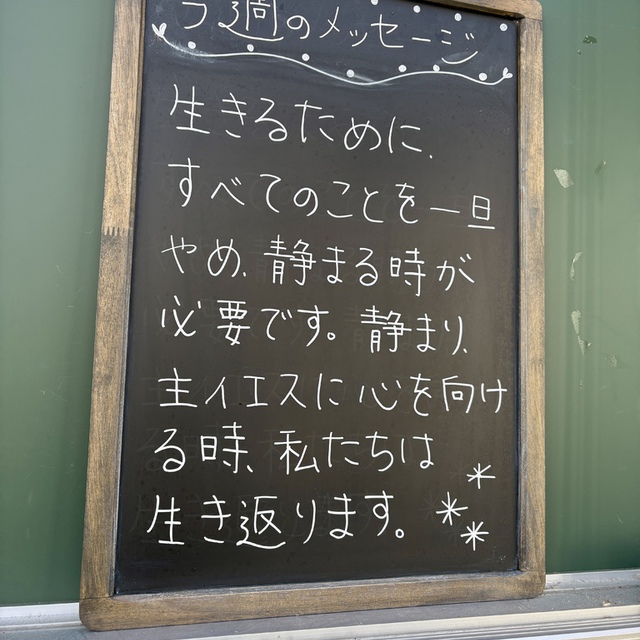 今週のメッセージ
生きるために、
すべてのことを一旦
やめ、静まる時が
必要です。静まり、
主イエスに心を向け
る時、私たちは
生き返ります。